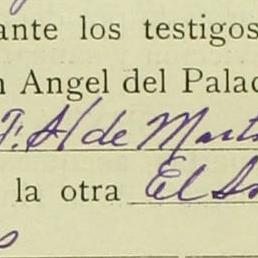 ante los testigos
n Angel del Palac
F. H/de Mart
la otra El Sr